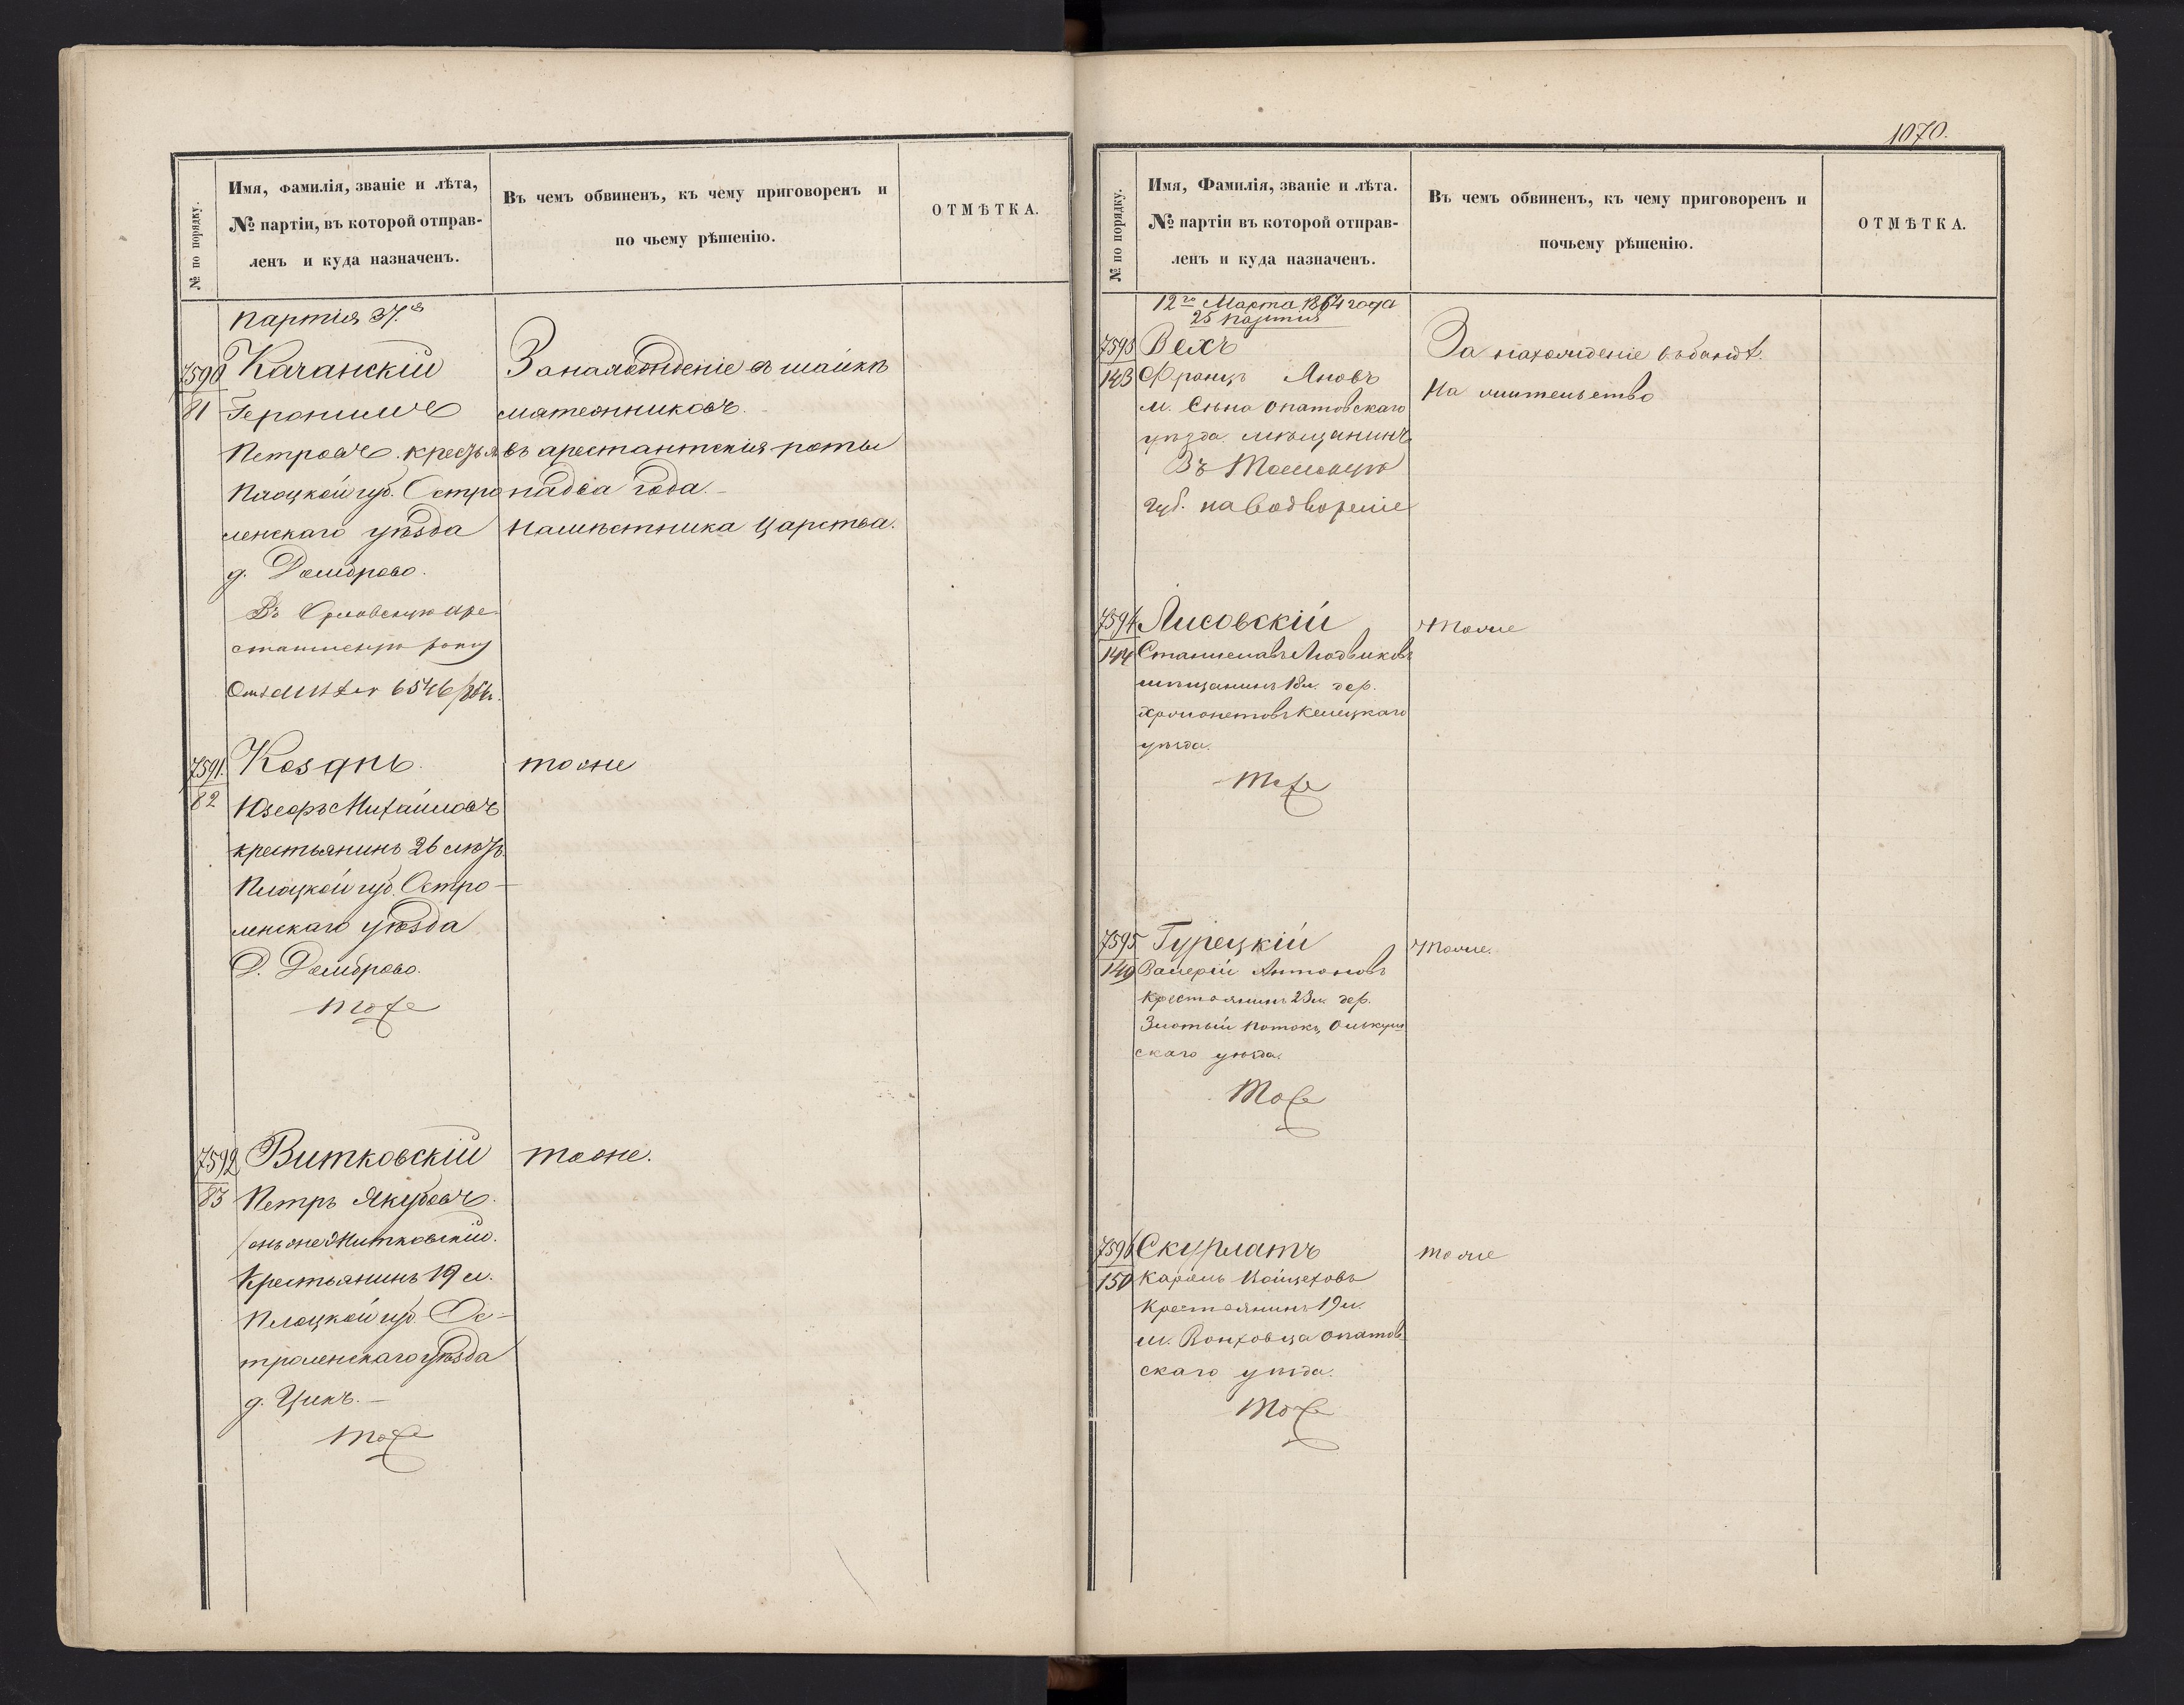 № по порядку.
Имя, Фамилія, званіе и лѣта,
№ партіи, въ которой отправ-
ленъ и куда назначенъ.
Въ чемъ обвиненъ, къ чему приговоренъ и
по чьему рѣшенію.
ОТМѢТКА.
партія 37.я
7590
81
Качанскій
Герониме
Петровъ. крестья
Плоцкой губ. Остро
ленскаго уѣзда
д. Домброво.
Въ Орловскую аре-
стантскую роту
6546
За нахожденіе въ шайкѣ
мятежниковъ.
въ арестантскія роты
на два года.
Намѣстника Царства.
7591.
82
Козянъ.
Юзефъ Михайловъ
крестьянинъ 26 лѣтъ.
Плоцкой губ. Остро-
ленскаго уѣзда
Д. Домброво.
тоже
тоже
7592
83
Витковскій
Петръ Якубовъ.
онъ же Миткавскій.
Крестьянинъ 19 л.
Плоцкой губ. Ос-
троленскаго уѣзда
д. Цикъ.-
тоже
тоже.
1070.
№ по порядку.
Имя, Фамилія, званіе и лѣта.
№ партіи въ которой отправ-
ленъ и куда назначенъ.
Въ чемъ обвиненъ, къ чему приговоренъ и
почьему рѣшенію.
ОТМѢТКА.
12го Марта 1864 года
25 партія
7593
143
Вехъ
Францъ Яновъ
м. Сѣна Опатовскаго
уѣзда мѣщанинъ
Въ Томскую
губ. на водвореніе
За нахожденіе въ бандѣ.
На жительство
7594
144
Лисовскій
Станиславъ Людвиковъ
мѣщанинъ 18 л. дер.
Келецкаго
уѣзда.
Тоже
тоже
7595
149
Турецкій
Валерій Антоновъ
крестьянинъ 23 л. дер.
Злотый потокъ, Олькуш
скаго уѣзда.
Тоже
тоже.
7596
150
Скурлатъ
Кароль Войцеховъ
Крестьянинъ 19 л.
м. Вонховца Опатов
скаго уѣзда.
Тоже
тоже